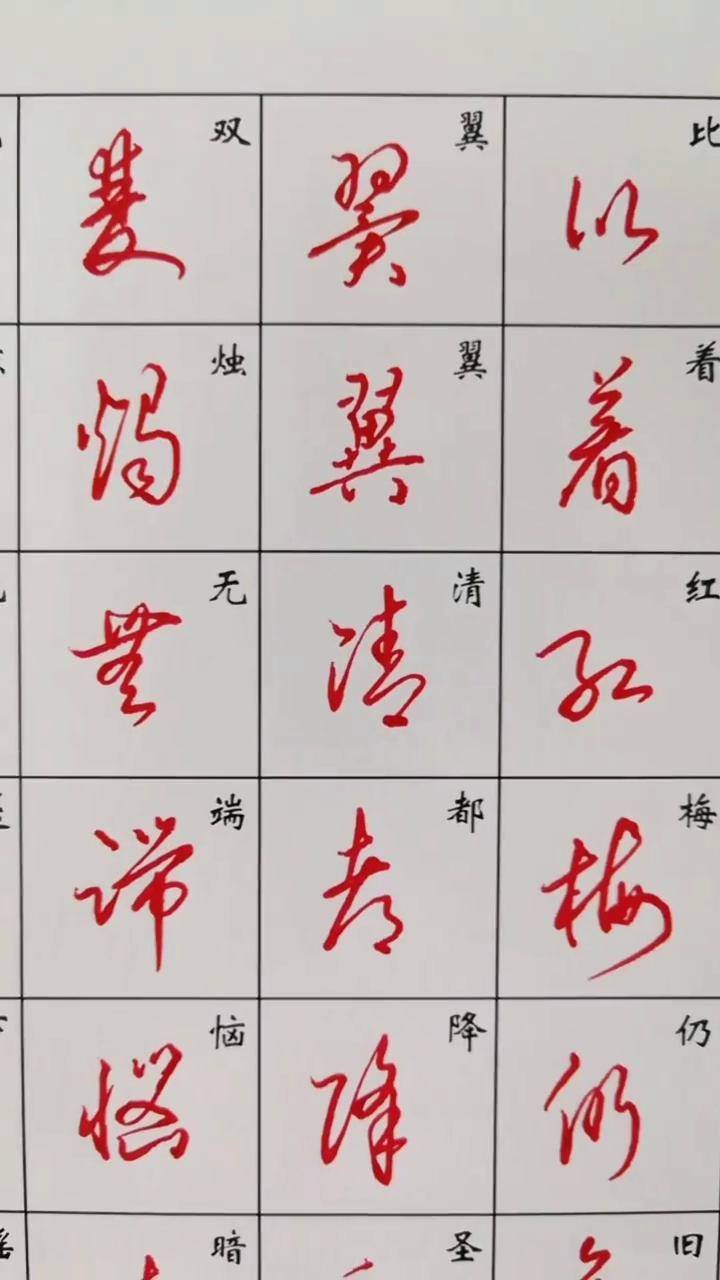 比着红梅仍旧
比着红梅仍
翼翼清都降圣
翼翼清都降
双烛无端恼暗
雙燭無端惱